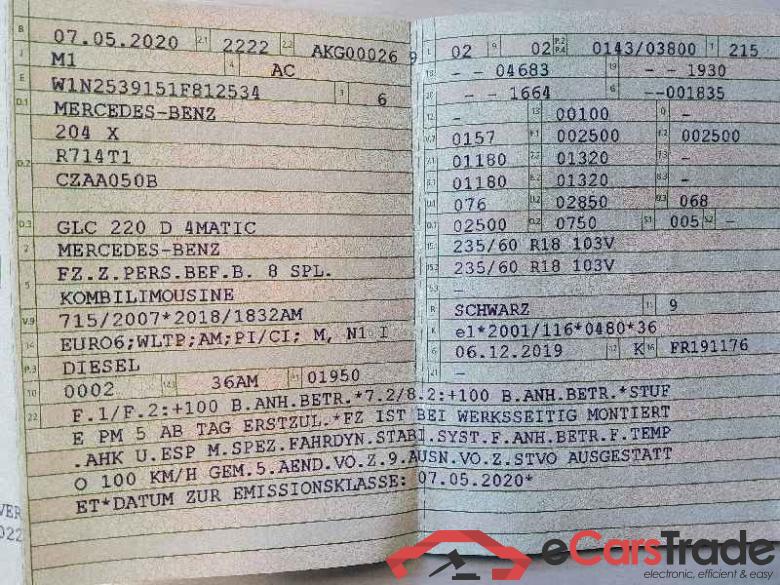 B 07.05.2020 2.1 2222 2.2 AKG00026 9
J M1 4 AC
E W1N2539151F812534 3 6
D.1 MERCEDES-BENZ
204 X
D.2 R714T1
CZAA050B
D.3 GLC 220 D 4MATIC
2 MERCEDES-BENZ
5 FZ.Z.PERS.BEF.B. 8 SPL.
KOMBILIMOUSINE
V.9 715/2007*2018/1832AM
14 EURO6;WLTP;AM;PI/CI; M, N1 I
P.3 DIESEL
10 0002 14.1 36AM P.1 01950
L 02 9 02 P.2 P.4 0143/03800 T 215
18 - - 04683 19 - - 1930
20 - - 1664 G --001835
12 - 13 00100 Q -
V.7 0157 F.1 002500 F.2 002500
7.1 01180 7.2 01320 7.3 -
8.1 01180 8.2 01320 8.3 -
U.1 076 U.2 02850 U.3 068
O.1 02500 O.2 0750 S.1 005 S.2 -
15.1 235/60 R18 103V
15.2 235/60 R18 103V
15.3 -
R SCHWARZ 11 9
K e1*2001/116*0480*36
6 06.12.2019 17 K 16 FR191176
21 -
22 F.1/F.2:+100 B.ANH.BETR.*7.2/8.2:+100 B.ANH.BETR.*STUF
E PM 5 AB TAG ERSTZUL.*FZ IST BEI WERKSSEITIG MONTIERT
.AHK U.ESP M.SPEZ.FAHRDYN.STABI.SYST.F.ANH.BETR.F.TEMP
O 100 KM/H GEM.5.AEND.VO.Z.9.AUSN.VO.Z.STVO AUSGESTATT
ET*DATUM ZUR EMISSIONSKLASSE: 07.05.2020*
VER
022
eCarsTrade
electronic, efficient & easy